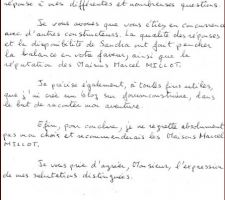 réponse à mes différentes et nombreuses questions.
Je vous avoue que vous étiez en concurrence
avec d'autres constructeurs. La qualité des réponses
et la disponibilité de Sandra ont fait pencher
la balance en votre faveur ainsi que la
réputation des Maisons Marcel MILLOT.
Je précise également, à toutes fins utiles,
que j'ai créé un blog sur forumconstruire, dans
le but de raconter mon aventure.
Enfin, pour conclure, je ne regrette absolument
pas mon choix et recommanderais les Maisons Marcel
MILLOT.
Je vous prie d'agréer, Monsieur, l'expression
de mes salutations distinguées.